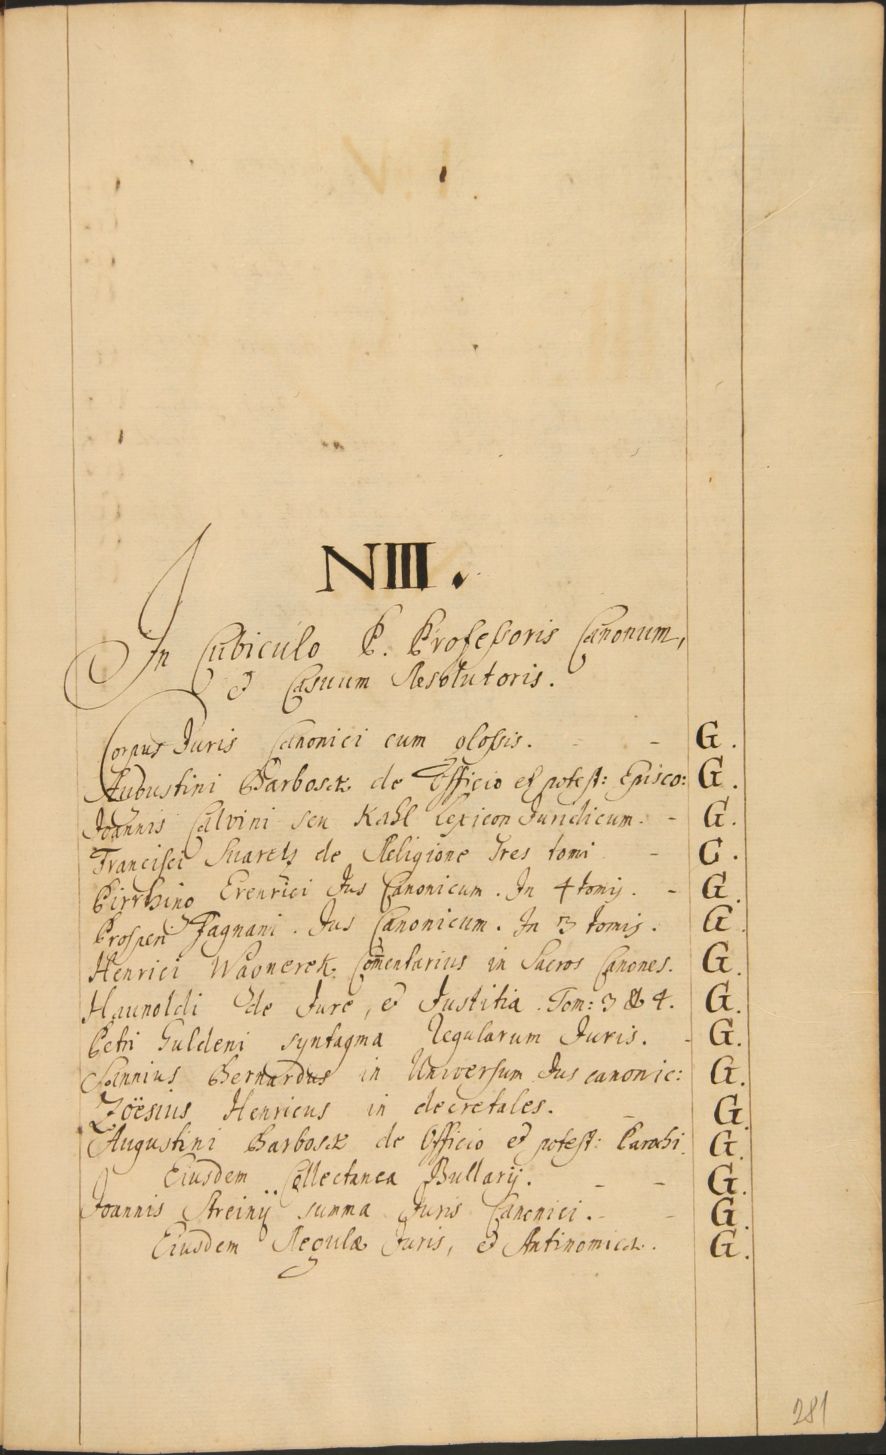 NIII.
In Cubiculo P. Professoris Canonum,
et Casuum Resolutoris.
Corpus Juris Canonici cum glossis. - - G.
Augustini Barbosæ de Officio et potest: Episco: G.
Joannis Calvini seu Kahl Lexicon Juridicum. - G.
Francisci Suarets de Religione Tres tomi - G.
Pirrhing Erenrici Jus Canonicum. In 4 tomis. - G.
Prosperi Fagnani. Jus Canonicum. In 3 tomis. G.
Henrici Wagnerek Com̃entarius in Sacros Canones. G.
Haunoldi de Jure, et Justitia. Tom: 3 & 4. G.
Petri Guldeni syntagma Regularum Juris. - G.
Sannius Bernardus in Universum Jus canonic: G.
Zöesius Henricus in decretales. - G.
Augustini Barbosæ de Officio et potest: Parochi. G.
Eiusdem Collectanea Bullarij. - - G.
Joannis Streinij summa Juris Canonici. - - G.
Eiusdem Regulæ Juris, et Antinomiæ. G.
281